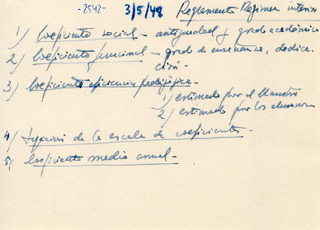 -2542- 3/5/48 Reglamento Régimen interior
1) Coeficiente social - antigüedad y grado académico
2) Coeficiente funcional - grado de enseñanza, dedica-
ción -
3) Coeficiente eficiencia pedagógica -
1) estimado por el Maestro
2) estimado por los alumnos
4) de la escala de coeficientes -
5) Coeficiente medio anual -